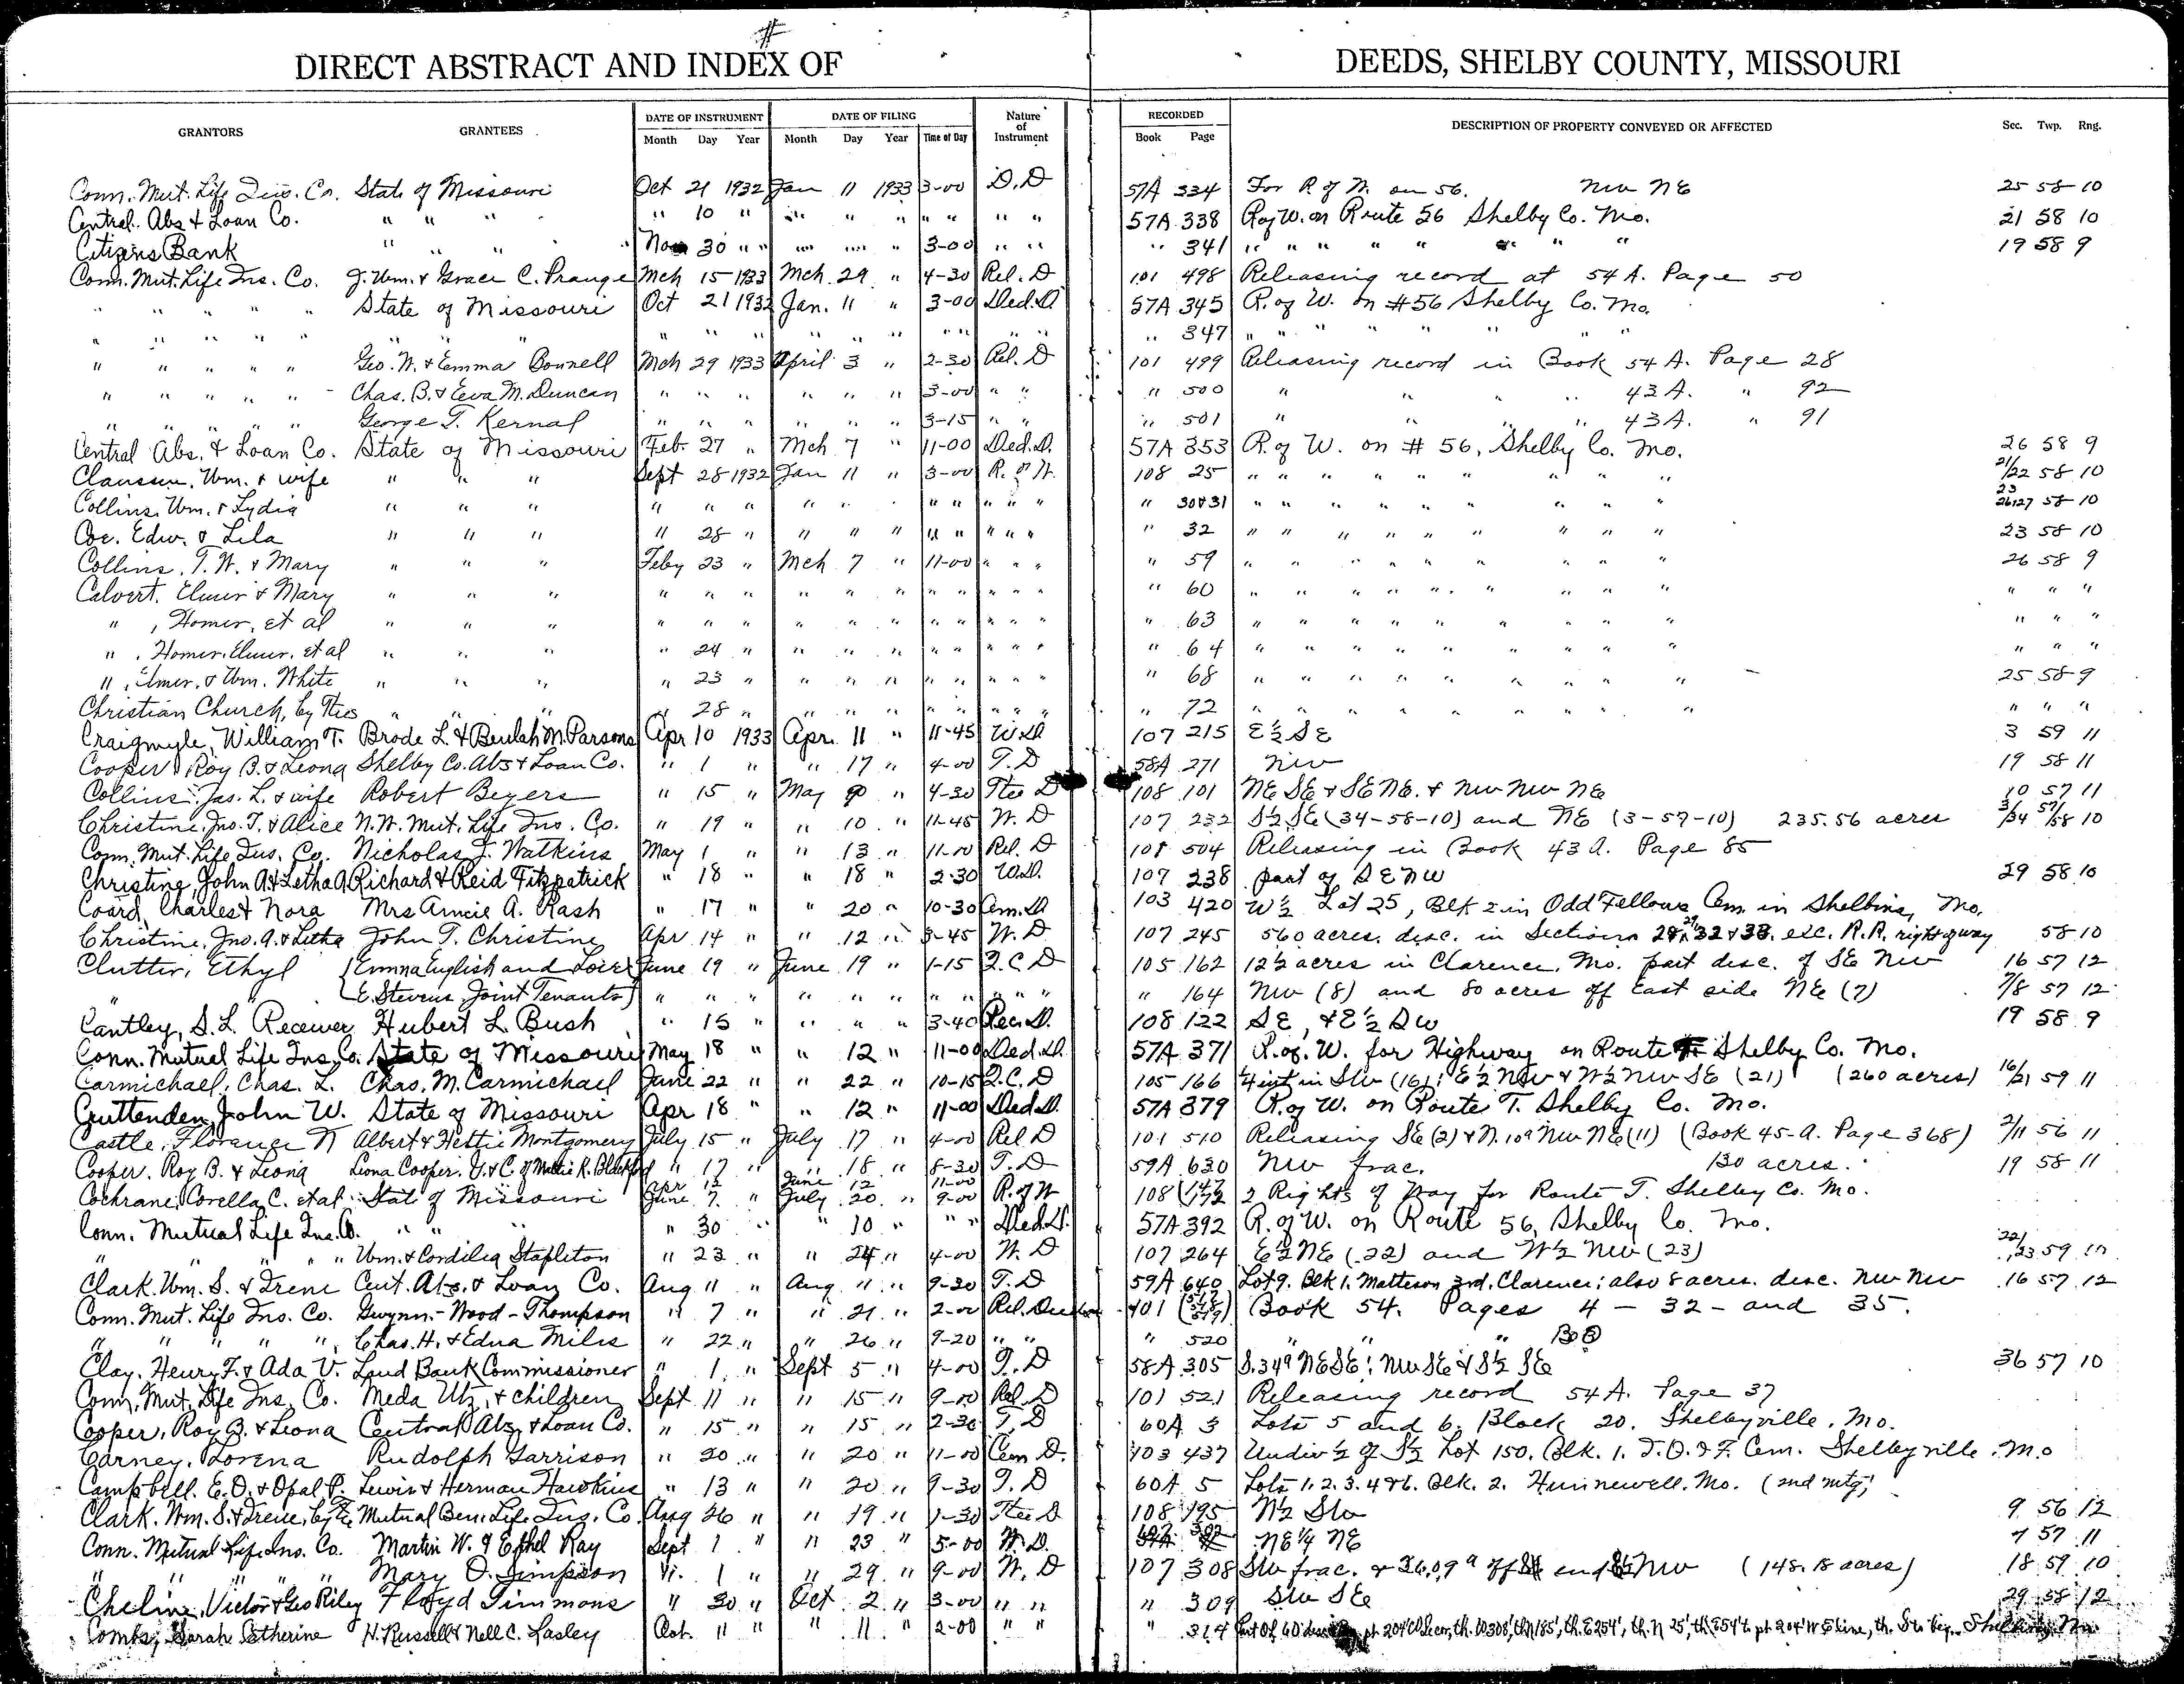 #
DIRECT ABSTRACT AND INDEX OF DEEDS, SHELBY COUNTY, MISSOURI
GRANTORS GRANTEES DATE OF INSTRUMENT DATE OF FILING Nature of Instrument RECORDED DESCRIPTION OF PROPERTY CONVEYED OR AFFECTED Sec. Twp. Rng.
Month Day Year Month Day Year Time of Day Book Page
Conn. Mut. Life Ins. Co. State of Missouri Oct 21 1932 Jan 11 1933 3-00 D.D 57A 334 For R of W. on 56. NW NE 25 58 10
Central Abs & Loan Co. " " " " 10 " " " " " " " " 57A 338 R of W. on Route 56 Shelby Co. Mo. 21 58 10
Citizens Bank " " " Nov 30 " " " " " 3-00 " " " 341 " " " " " " " " 19 58 9
Conn. Mut. Life Ins. Co. J. Wm. & Grace C. Prange Mch 15 1933 Mch 29 " 4-30 Rel. D 101 498 Releasing record at 54 A. Page 50
" " " " " State of Missouri Oct 21 1932 Jan. 11 " 3-00 Ded. D 57A 345 R. of W. on #56 Shelby Co. Mo.
" " " " " " " " " " " " " " " " " " " 347 " " " " " " " "
" " " " " Geo. W. & Emma Bonnell Mch 29 1933 April 3 " 2-30 Rel. D 101 499 Releasing record in Book 54 A. Page 28
" " " " " Chas. B. & Eva M. Duncan " " " " " " 3-00 " " " 500 " " " " 43 A. " 92
" " " " " George T. Kernal " " " " " " 3-15 " " " 501 " " " " 43 A. " 91
Central Abs. & Loan Co. State of Missouri Feb. 27 " Mch 7 " 11-00 Ded. D. 57A 353 R. of W. on # 56, Shelby Co. Mo. 26 58 9
Claussen, Wm. & wife " " " Sept 28 1932 Jan 11 " 3-00 R. of W. 108 25 " " " " " " " " 21/22 58 10
Collins, Wm. & Lydia " " " " " " " " " " " " " " " 30&31 " " " " " " " " 23 26&27 58 10
Coe. Edw. & Lila " " " " 28 " " " " " " " " " " 32 " " " " " " " " 23 58 10
Collins, T. W. & Mary " " " Feby 23 " Mch 7 " 11-00 " " " " 59 " " " " " " " " 26 58 9
Calvert. Elmer & Mary " " " " " " " " " " " " " " " 60 " " " " " " " " " " "
" , Homer, et al " " " " " " " " " " " " " " " 63 " " " " " " " " " " "
" , Homer, Elmer, et al " " " " 24 " " " " " " " " " " 64 " " " " " " " " " " "
" , Elmer, & Wm. White " " " " 23 " " " " " " " " " " 68 " " " " " " " " 25 58 9
Christian Church, by Ttees " " " " 28 " " " " " " " " " " 72 " " " " " " " " " " "
Craigmyle, William T. Brode L. & Beulah M. Parsons Apr 10 1933 Apr. 11 " 11-45 W.D 107 215 E½ SE 3 59 11
Cooper, Roy B. & Leona Shelby Co. Abs & Loan Co. " 1 " " 17 " 4-00 T. D 58A 271 NW 19 58 11
Collins, Jas. L. & wife Robert Beyers " 15 " May " 4-30 Ttee D 108 101 NE SE & SE NE. & NW NW NE 10 57 11
Christine, Jno. T. & Alice N.W. Mut. Life Ins. Co. " 19 " " 10 " 11-45 W. D 107 232 S½ SE (34-58-10) and NE (3-57-10) 235.56 acres 3/34 57/58 10
Conn. Mut. Life Ins. Co. Nicholas J. Watkins May 1 " " 13 " 11-00 Rel. D 101 504 Releasing in Book 43 A. Page 85
Christine, John A. & Letha A. Richard & Reid Fitzpatrick " 18 " " 18 " 2-30 W.D. 107 238 part of SE NW 29 58 10
Coard, Charles & Nora Mrs Annie A. Rash " 17 " " 20 " 10-30 Cem. D 103 420 W½ Lot 25, Blk 2 in Odd Fellows Cem. in Shelbina, Mo.
Christine, Jno. A. & Letha John T. Christine Apr 14 " " 12 " 3-45 W. D 107 245 560 acres. desc. in Sections 28, 29, 32 & 33. exc. R.R. right of way 58-10
Clutter, Ethyl {Emma English and Loie June 19 " June 19 " 1-15 Q.C D 105 162 12½ acres in Clarence, Mo. part desc. of SE NW 16 57 12
" {E. Stevens, Joint Tenants} " " " " " " " " " " " " 164 NW (8) and 80 acres off East side NE (7) 7/8 57 12
Cantley, S. L. Receiver Hubert L. Bush " 15 " " " " 3-40 Rec. D. 108 122 SE, & E½ SW 19 58 9
Conn. Mutual Life Ins. Co. State of Missouri May 18 " " 12 " 11-00 Ded. D. 57A 371 R. of. W. for Highway on Route Shelby Co. Mo.
Carmichael, Chas. L. Chas. M. Carmichael June 22 " " 22 " 10-15 Q.C. D 105 166 ¼ int in SW (16); E½ NW & W½ NW SE (21) (260 acres) 16/21 59 11
Cruttenden, John W. State of Missouri Apr 18 " " 12 " 11-00 Ded. D. 57A 379 R. of W. on Route T. Shelby Co. Mo.
Castle, Florence N Albert & Hettie Montgomery July 15 " July 17 " 4-00 Rel. D 101 510 Releasing SE (2) & N. 10ª NW NE (11) (Book 45-A. Page 368) 2/11 56 11
Cooper. Roy B. & Leona Leona Cooper. G. & C. of Mattie K. " 17 " " 18 " 8-30 T. D 59A 630 NW frac. 130 acres. 19 58 11
Cochrane, Corella C. et al State of Missouri Apr 12 June 7 " June 12 July 20 " 11-00 9-00 R. of W 108 (147 172 2 Rights of Way for Route T. Shelby Co. Mo.
Conn. Mutual Life Ins. Co. " " " " 30 " " 10 " " " Ded. D. 57A 392 R. of W. on Route 56, Shelby Co. Mo.
" " " " Wm. & Cordilia Stapleton " 23 " " 24 " 4-00 W. D 107 264 E½ NE (22) and W½ NW (23) 22/23 59 10
Clark. Wm. S. & Irene Cent. Abs. & Loan Co. Aug 11 " Aug 11 " 9-30 T. D 59A 640 Lot 9. Blk 1. Matteson 3rd. Clarence; also 8 acres. desc. NW NW 16 57 12
Conn. Mut. Life Ins. Co. Gwynn-Wood-Thompson " 7 " " 21 " 2-00 Rel. 101 Book 54. Pages 4 - 32 - and 35.
" " " " " Chas. H. & Edna Miles " 22 " " 26 " 9-20 " " " 520 " " "
Clay. Henry F. & Ada V. Land Bank Commissioner " 1 " Sept 5 " 4-00 T. D 58A 305 S. 34ª NE SE; NW SE & S½ SE 36 57 10
Conn. Mut. Life Ins. Co. Meda Utz, & children Sept 11 " " 15 " 9-00 Rel. D 101 521 Releasing record 54 A. Page 37
Cooper, Roy B. & Leona Central Abs. & Loan Co. " 15 " " 15 " 2-30 T. D 60A 3 Lots 5 and 6. Block 20. Shelbyville. Mo.
Carney. Lorena Rudolph Garrison " 20 " " 20 " 11-00 Cem D. 103 437 Undiv ½ of S½ Lot 150. Blk. 1. I.O.O.F. Cem. Shelbyville. Mo
Campbell. E. O. & Opal P. Lewis & Herman Hawkins " 13 " " 20 " 9-30 T. D 60A 5 Lots 1. 2. 3. 4 & 6. Blk. 2. Hunnewell. Mo. (2nd mtg)
Clark. Wm. S. & Irene, by Ttee Mutual Ben. Life Ins. Co Aug 26 " " 19 " 1-30 Ttee D 108 195 N½ SW 9 56 12
Conn. Mutual Life Ins. Co. Martin W. & Ethel Ray Sept 1 " " 23 " 5-00 W. D. 107 302 NE¼ NE 7 57 11
" " " " Mary O. Simpson " 1 " " 29 " 9-00 W. D 107 308 SW frac. & 26.09ª off end NW (148.18 acres) 18 59 10
Cheline, Victor & Geo Riley Floyd Timmons " 30 " Oct. 2 " 3-00 " " " 309 SW SE 29 58 12
Combs, Sarah Catherine H. Russell & Nell C. Lasley Oct. 11 " " 11 " 2-00 " " " 314 Shelbina Mo.